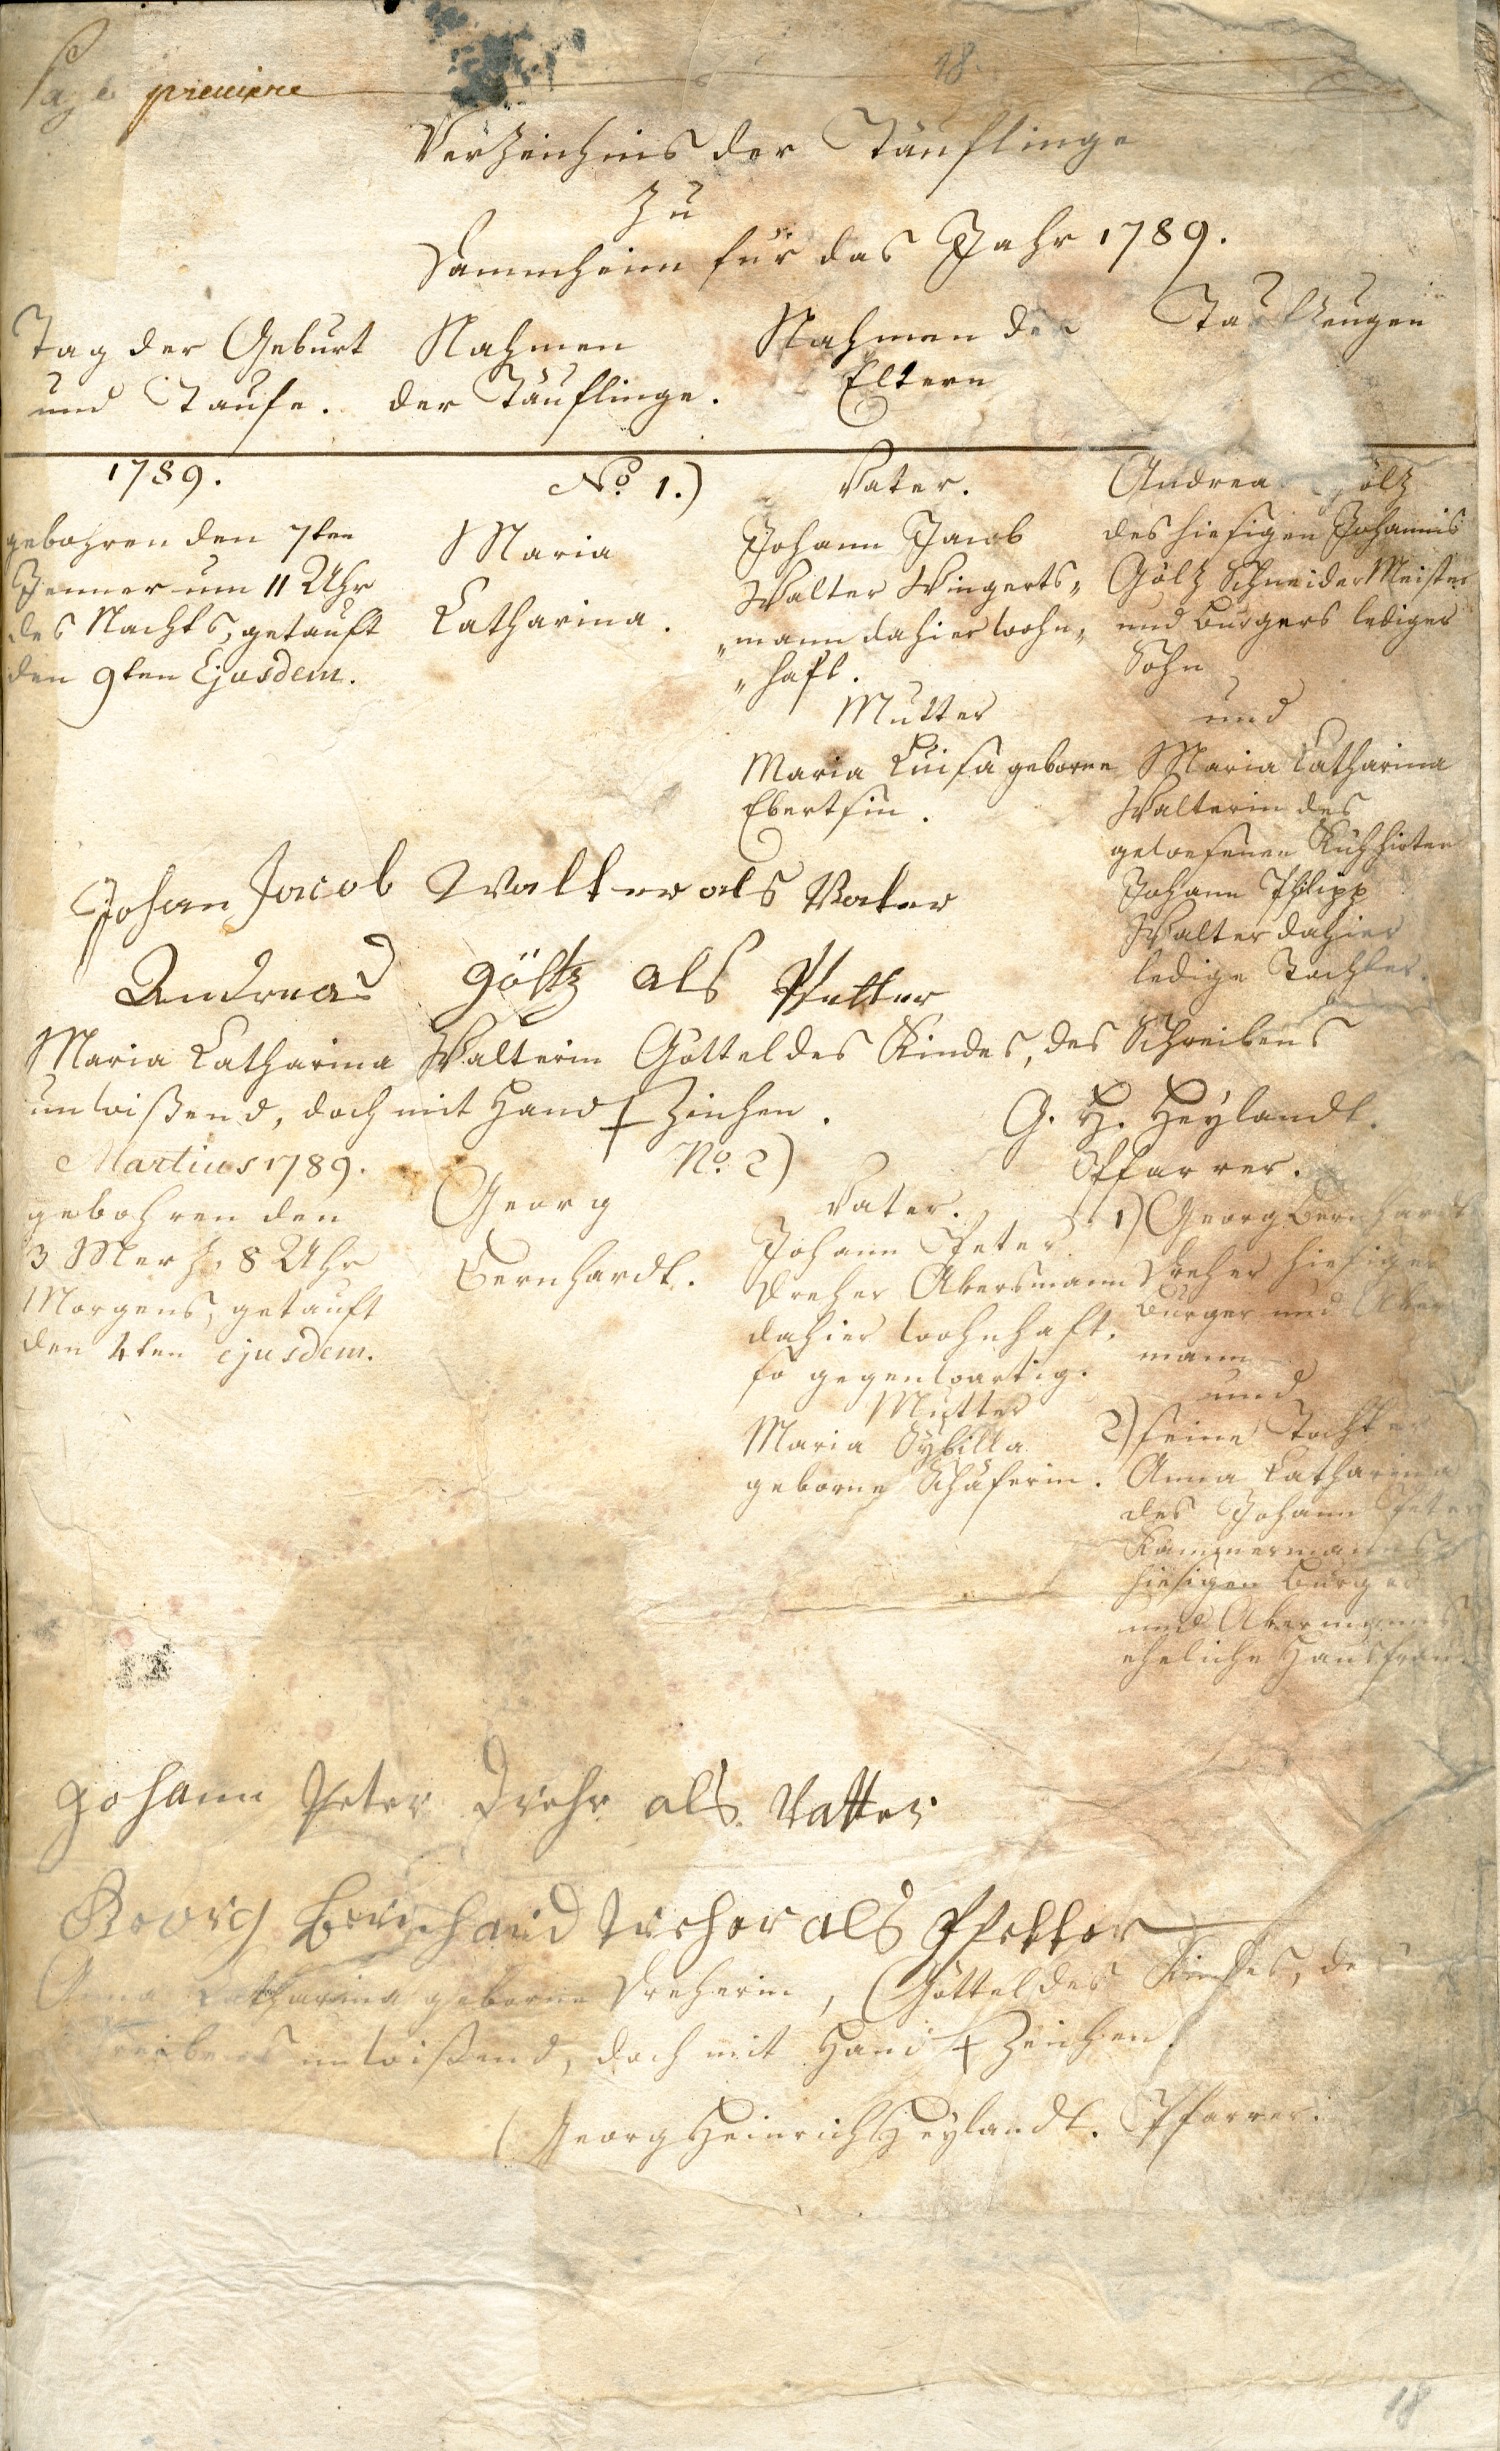 Page premiere
18.
Verzeichnis der Täuflinge
zu
Dammheim für das Jahr 1789.
Tag der Geburt
und Taufe.
Nahmen
der Täuflinge.
Nahmen der
Eltern
Taufzeugen
1789.
gebohren den 7ten
Jenner um 11 Uhr
des Nachts, getauft
den 9ten Ejusdem.
No. 1.)
Maria
Catharina.
Vater.
Johann Jacob
Walter Wingerts„
„mann dahier wohn„
„haft.
Mutter
Maria Luisa geborne
Ebertsin.
Andrea ölz
des hiesigen Johannis
Gölz Schneider Meister
und Burgers lediger
Sohn
und
Maria Catharina
Walterin des
gewesenen Kuhhirten
Johann Philipp
Walter dahier
ledige Tochter.
Johan Jacob Walter als Vater
Andreas göltz als Pfetter
Maria Catharina Walterin Gottel des Kindes, des Schreibens
unwißend, doch mit Hand + Zeichen.
G. H. Heylandt.
Pfarrer.
Martius 1789.
gebohren den
3 Merz, 8 Uhr
Morgens, getauft
den 4ten ejusdem.
No. 2)
Georg
Bernhardt.
Vater.
Johann Peter
Dreher Akersmann
dahier wohnhaft.
so gegenwartig.
Mutter
Maria Sybilla
geborne Schäferin.
1) Georg Bernhardt
Dreher hiesiger
Burger und Aker
mann
und
2) seine Tochter
Anna Catharina
des Johann Peter
Kammermanns
hiesigen Burger
und Akermanns
eheliche Hausfrau.
Johann Peter Drehr als Vatter
Georg Bernhard Dreher als Pfetter
Anna Catharina geborne Dreherin, Gottel des Kindes, des
Schreibens unwißend, doch mit Hand + Zeichen.
Georg Heinrich Heylandt. Pfarrer.
18